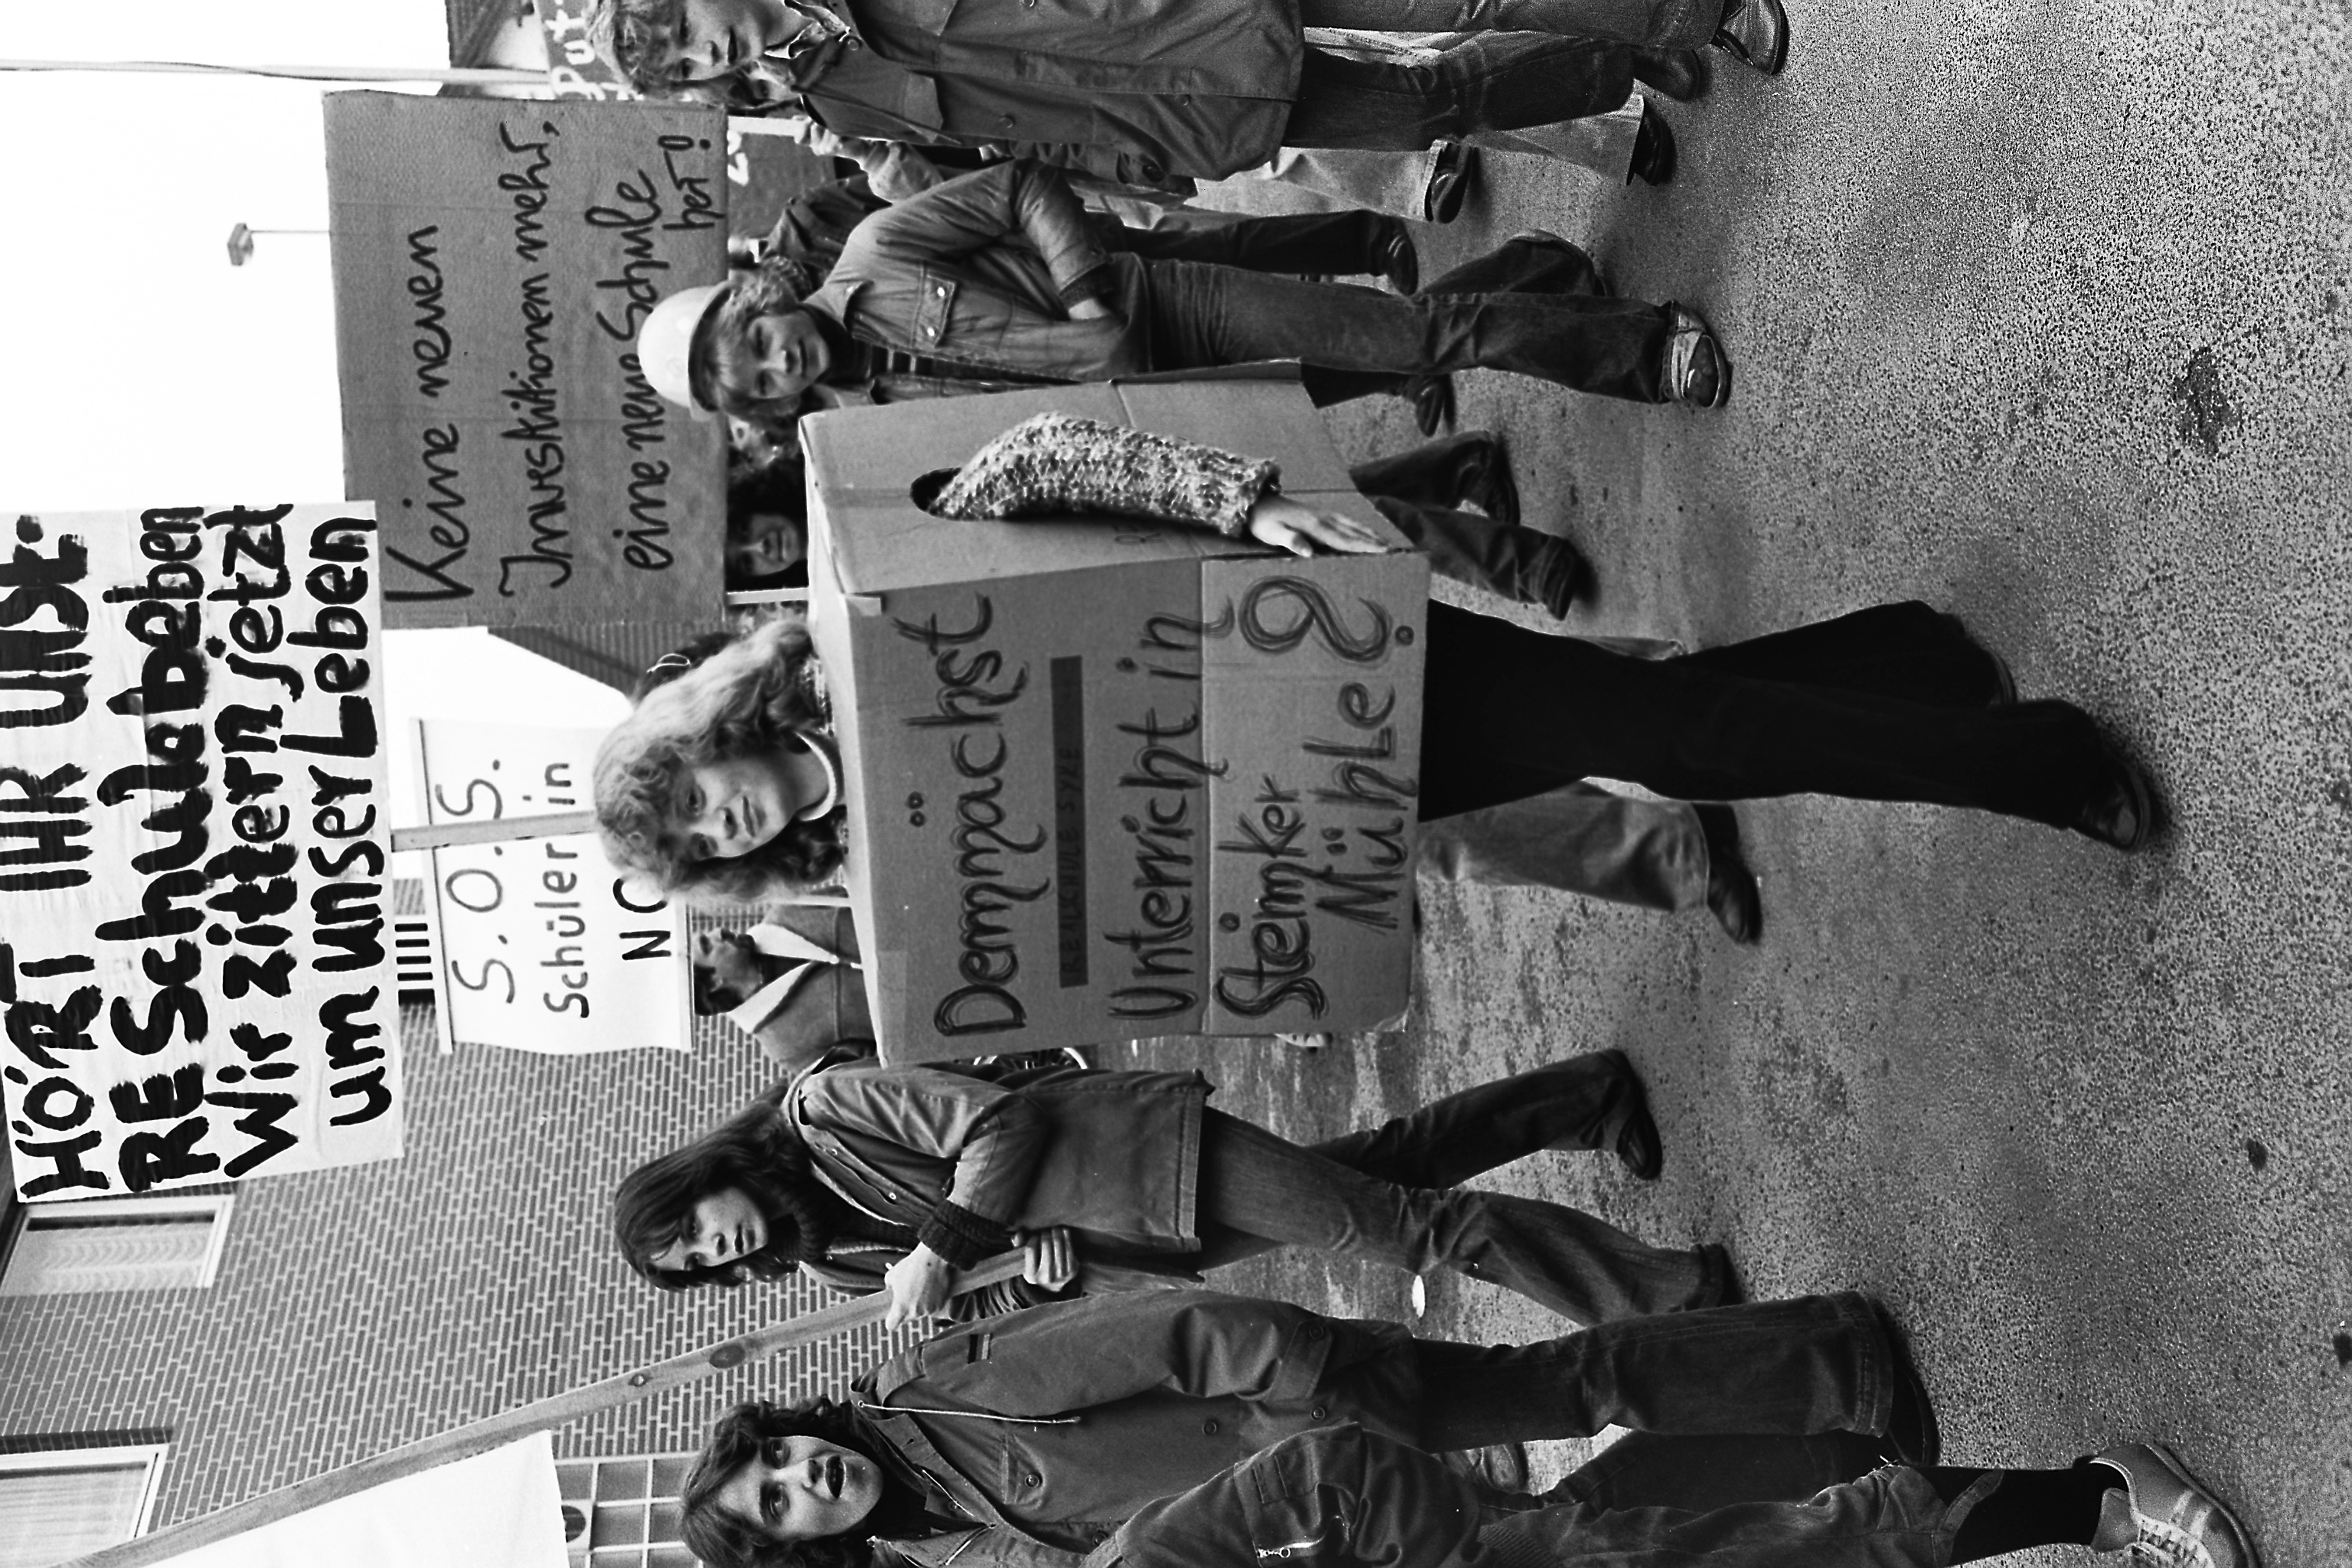 HÖRT IHR UNS?
RE Schulebeben
Wir zittern jetzt
um unser Leben
S.O.S.
Schüler in
NO
Keine neuen
Investitionen mehr,
eine neue Schule
her!
Demnächst
REALSCHULE SYKE
Unterricht in
Steimker
Mühle?